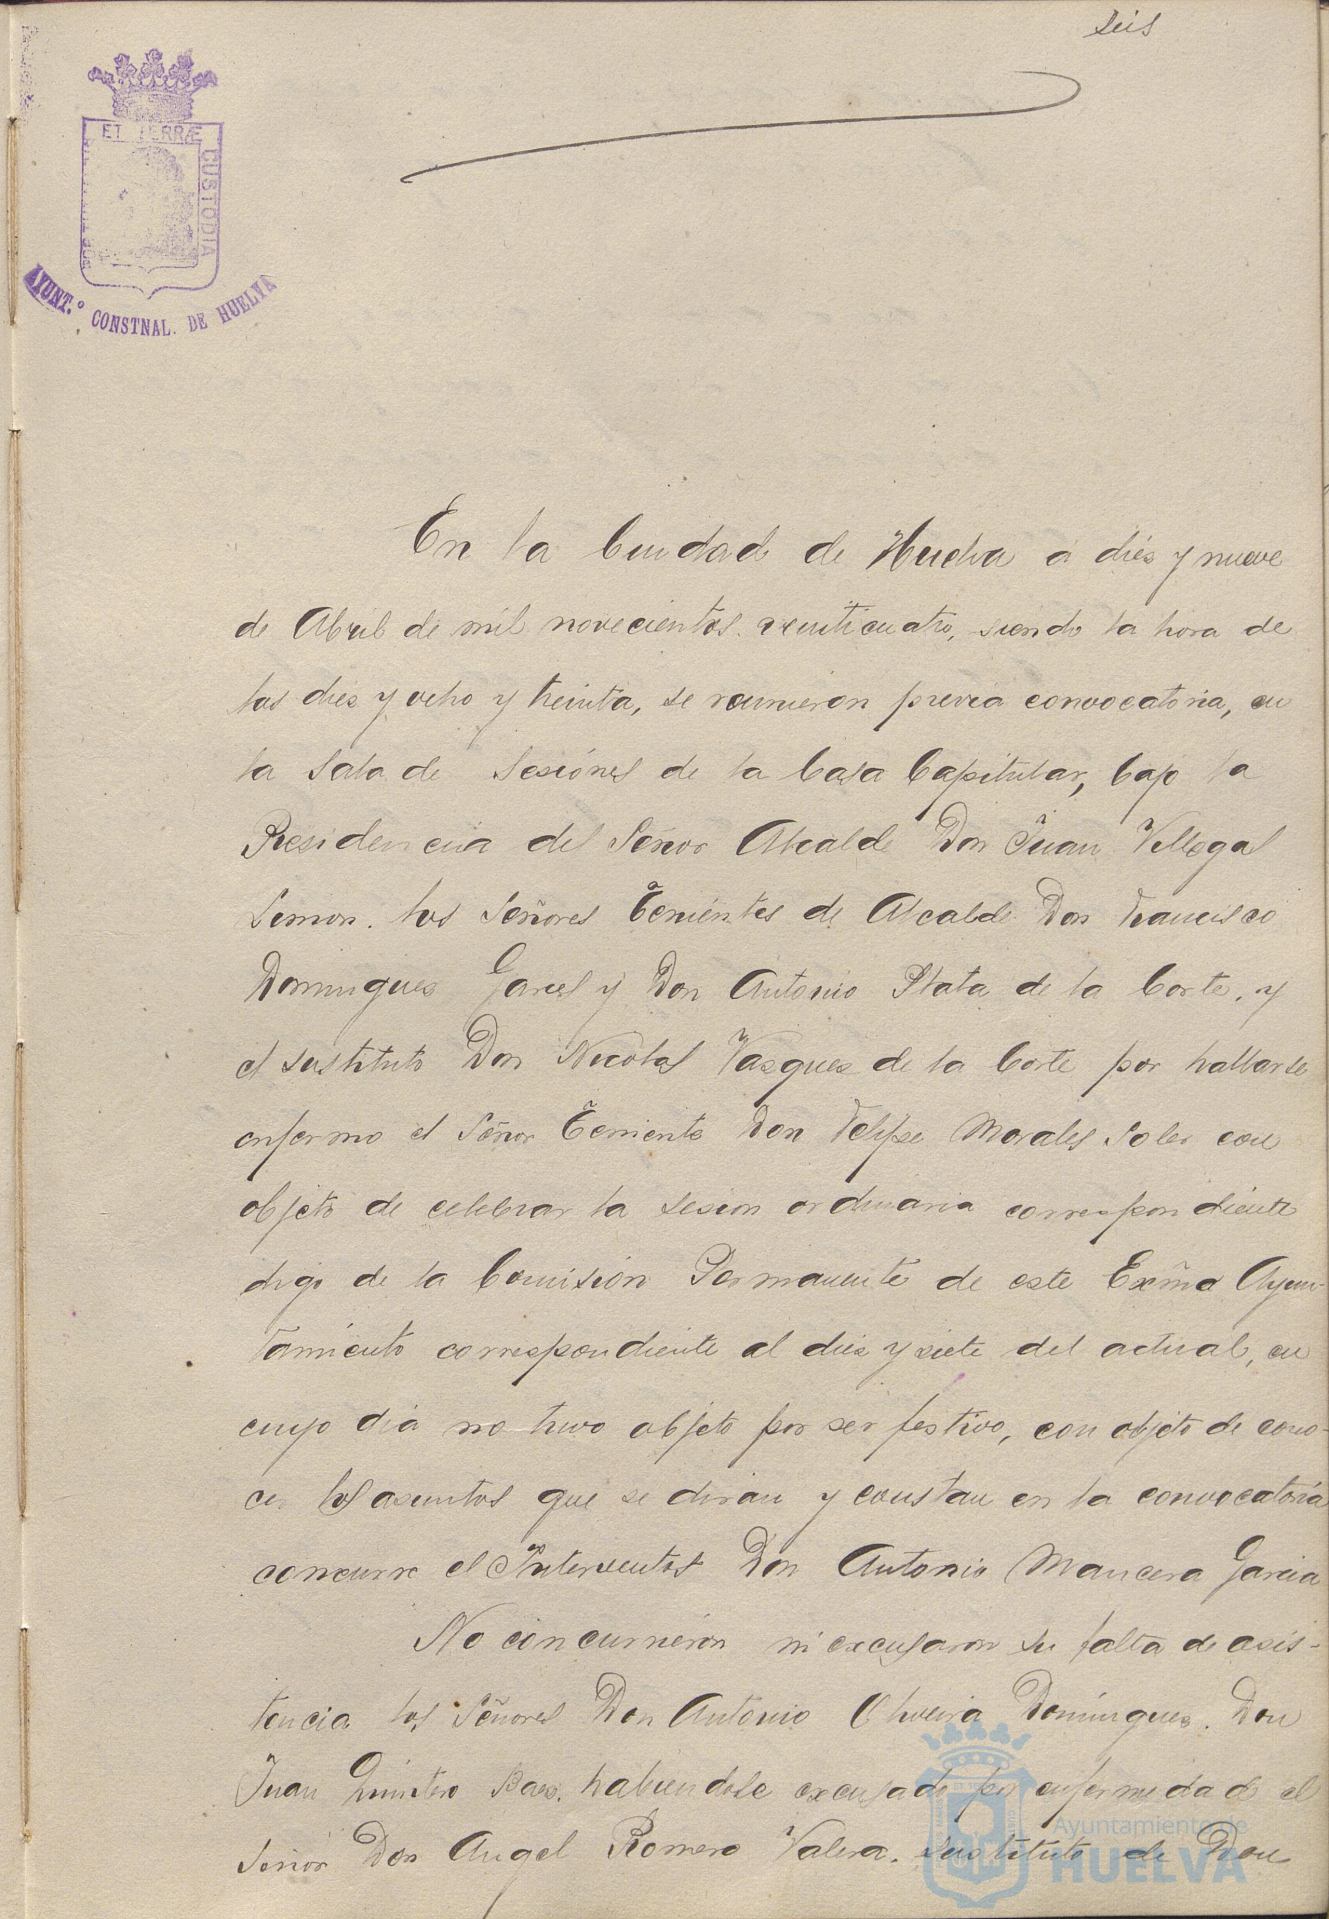 seis
ET TERRÆ
CUSTODIA
AYUNT.º CONSTNAL. DE HUELVA
En la Ciudad de Huelva á diés y nueve
de Abril de mil novecientos veinticuatro, siendo la hora de
las dies y ocho y treinta, se reunieron previa convocatoria, en
la Sala de Sesiónes de la Casa Capitular, bajo la
Presidencia del Señor Alcalde Don Juan Villegas
Simon. los Señores Tenientes de Alcalde Don Francisco
Domingues Garces y Don Antonio Plata de la Corte, y
el sustituto Don Nicolas Vasques de la Corte por hallarse
enfermo el Señor Teniente Don Felipe Morales Soler con
objeto de celebrar la sesion ordinaria correspondiente
digo de la Comisión Permanente de este Exmo Ayun-
tamiento correspondiente al dies y siete del actual, en
cuyo dia no tuvo objeto por ser festivo, con objeto de cono-
cer los asuntos que se diran y constan en la convocatoria
concurre el Interventor Don Antonio Mancera Garcia
No concurrieron ni excusaron su falta de asis-
tencia los Señores Don Antonio Oliveira Domingues. Don
Juan Quintero Baes. habiendose excusado por enfermedad el
Señor Don Angel Romero Valera. sustituto de Don
Ayuntamiento de
HUELVA